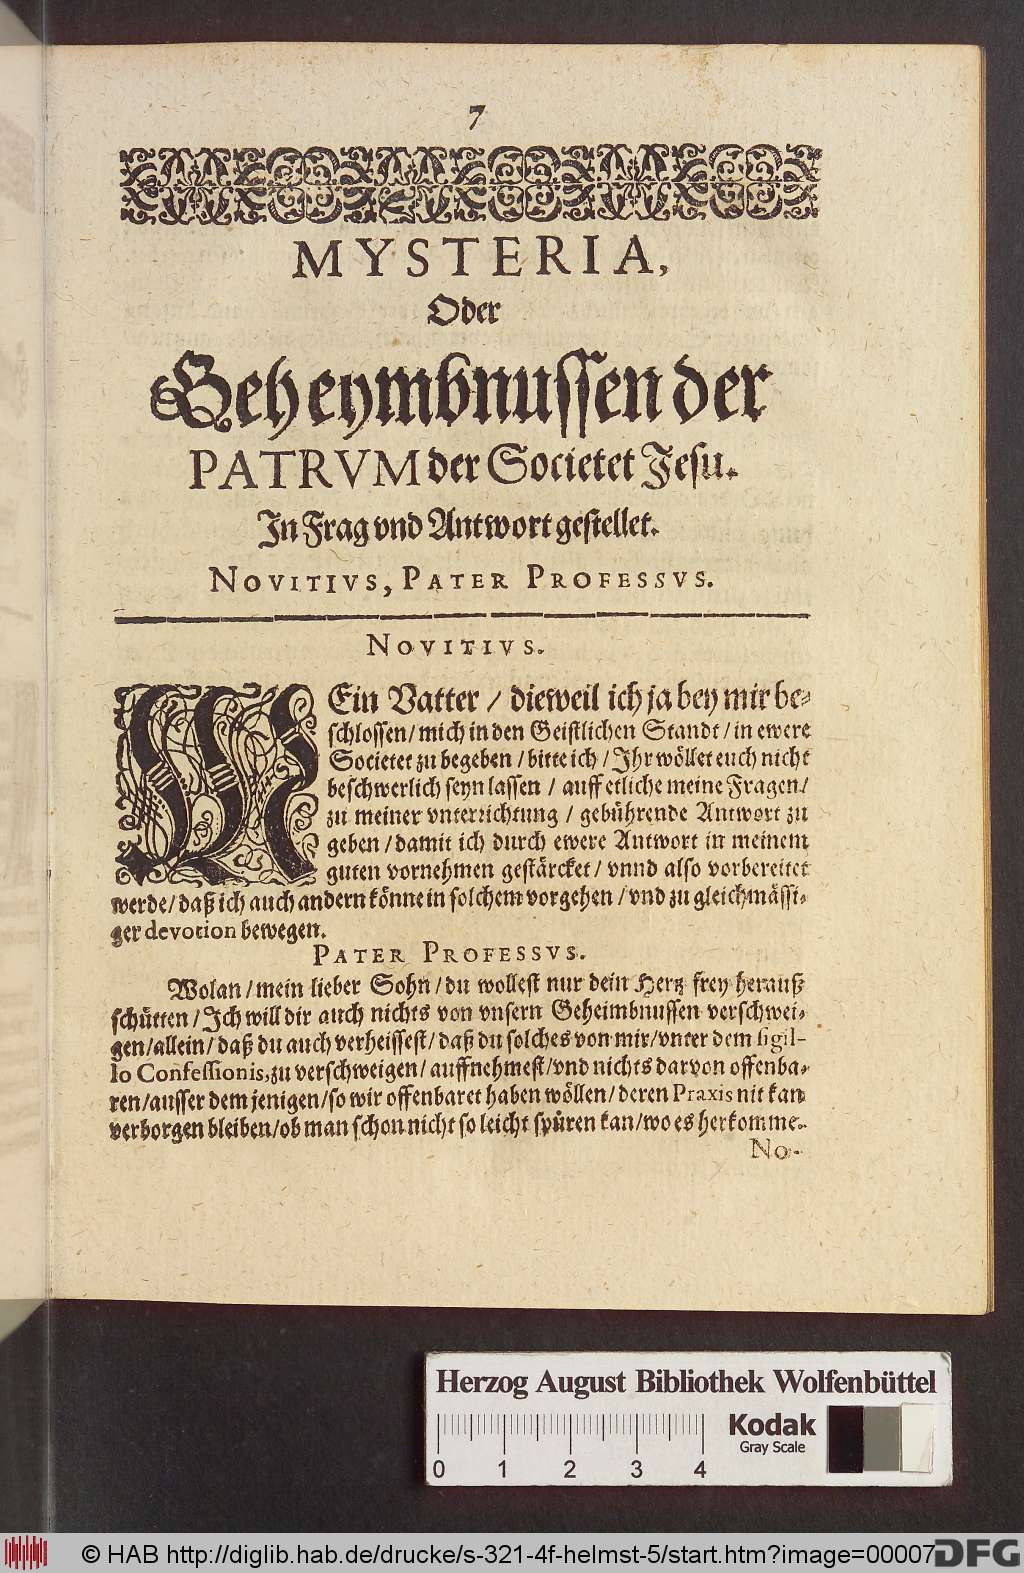 7
MYSTERIA,
Oder
Geheymbnussen der
PATRVM der Societet Jesu.
In Frag vnd Antwort gestellet.
NOVITIVS, PATER PROFESSVS.
NOVITIVS.
MEin Vatter / dieweil ich ja bey mir be-
schlossen / mich in den Geistlichen Standt / in ewere
Societet zu begeben / bitte ich / Ihr wöllet euch nicht
beschwerlich seyn lassen / auff etliche meine Fragen /
zu meiner vnterrichtung / gebührende Antwort zu
geben / damit ich durch ewere Antwort in meinem
guten vornehmen gestärcket / vnnd also vorbereitet
werde / daß ich auch andern könne in solchem vorgehen / vnd zu gleichmässi-
ger devotion bewegen.
PATER PROFESSVS.
Wolan / mein lieber Sohn / du wollest nur dein Hertz frey herauß
schütten / Ich will dir auch nichts von vnsern Geheimbnussen verschwei-
gen / allein / daß du auch verheissest / daß du solches von mir / vnter dem sigil-
lo Confessionis, zu verschweigen / auffnehmest / vnd nichts darvon offenba-
ren / ausser dem jenigen / so wir offenbaret haben wöllen / deren Praxis nit kan
verborgen bleiben / ob man schon nicht so leicht spüren kan / wo es herkomme.
No-
Herzog August Bibliothek Wolfenbüttel
Kodak
Gray Scale
0 1 2 3 4
© HAB http://diglib.hab.de/drucke/s-321-4f-helmst-5/start.htm?image=00007
DFG